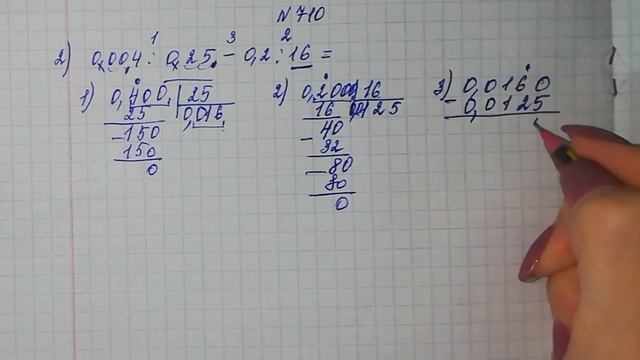 N 710
2) 0,004 : 0,25 - 0,2 : 16 =
1 3 2
1) 0,400, | 25
25 0,016,
-150
150
0
2) 0,200 | 16
16 0,0125
- 40
32
- 80
80
0
3) 0,0160
- 0,0125